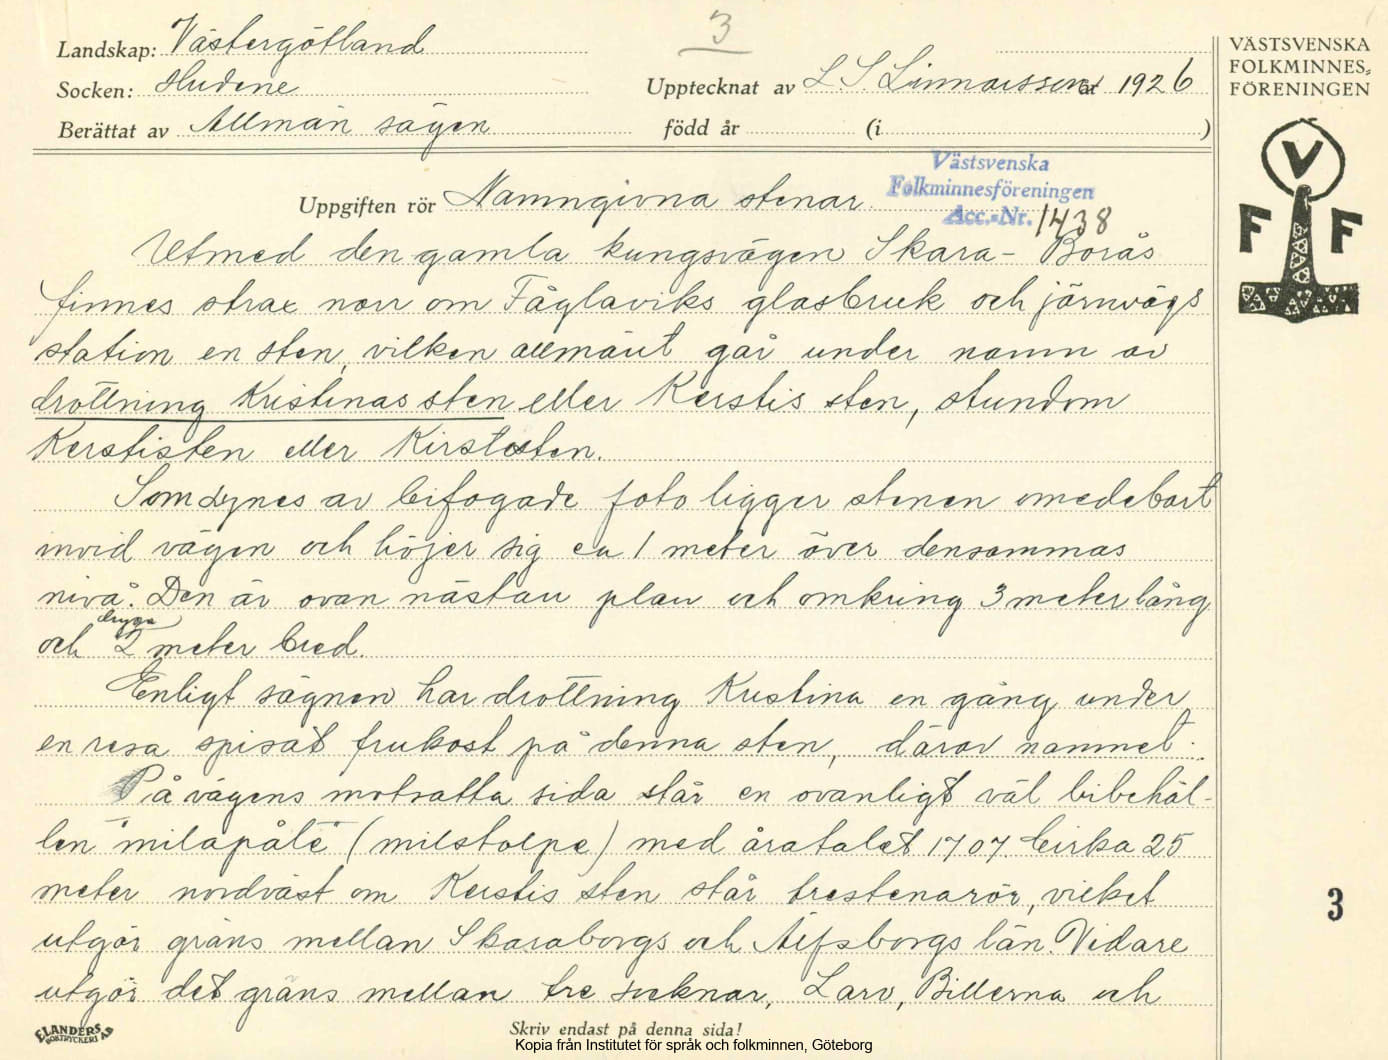 3
Landskap: Västergötland
Socken: Hudene
Upptecknat av L. S. Linnarsson år 1926
Berättat av Allmän sägen född år (i )
VÄSTSVENSKA
FOLKMINNES-
FÖRENINGEN
V
F F
Västsvenska
Folkminnesföreningen
Acc.-Nr. 1438
Uppgiften rör Namngivna stenar.
Utmed den gamla kungsvägen Skara - Borås
finnes strax norr om Fåglaviks glasbruk och järnvägs
station en sten, vilken allmänt går under namn av
drottning Kristinas sten eller Kerstis sten, stundom
Kerstisten eller Kirstesten.
Som synes av bifogade foto ligger stenen omedebart
invid vägen och höjer sig ca 1 meter över densammas
nivå. Den är ovan nästan plan och omkring 3 meter lång
och dryga 2 meter bred.
Enligt sägnen har drottning Kristina en gång under
en resa spisat frukost på denna sten, därav namnet.
På vägens motsatta sida står en ovanligt väl bibehål-
len "milapåle" (milstolpe) med åratalet 1707. Cirka 25
meter nordväst om Kerstis sten står trestenarör, vilket
utgör gräns mellan Skaraborgs och Älfsborgs län. Vidare
utgör det gräns mellan tre socknar, Larv, Bitterna och
3
ELANDERS
BOKTRYCKERI AB
Skriv endast på denna sida!
Kopia från Institutet för språk och folkminnen, Göteborg